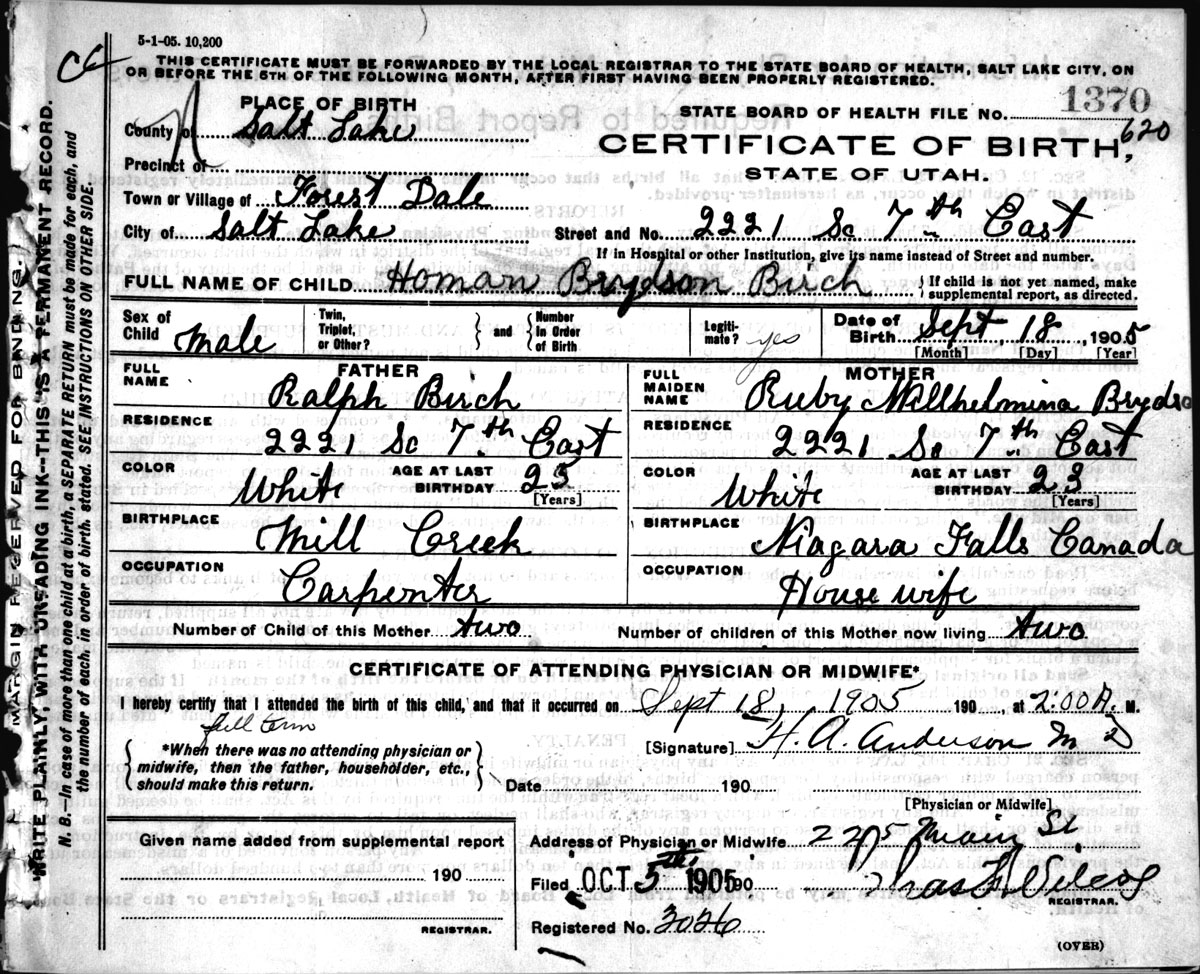 5-1-05. 10,200
THIS CERTIFICATE MUST BE FORWARDED BY THE LOCAL REGISTRAR TO THE STATE BOARD OF HEALTH, SALT LAKE CITY, ON
OR BEFORE THE 5TH OF THE FOLLOWING MONTH, AFTER FIRST HAVING BEEN PROPERLY REGISTERED.
MARGIN RESERVED FOR BINDING
WRITE PLAINLY, WITH UNFADING INK—THIS IS A PERMANENT RECORD.
N. B.—In case of more than one child at a birth, a SEPARATE RETURN must be made for each, and
the number of each, in order of birth, stated. SEE INSTRUCTIONS ON OTHER SIDE.
PLACE OF BIRTH
STATE BOARD OF HEALTH FILE No. 1370
620
County of Salt Lake
CERTIFICATE OF BIRTH,
Precinct of
STATE OF UTAH.
Town or Village of Forest Dale
City of Salt Lake Street and No. 2221 So 7th East
If in Hospital or other Institution, give its name instead of Street and number.
FULL NAME OF CHILD Homan Brydson Birch { If child is not yet named, make
supplemental report, as directed.
Sex of Child Male Twin, Triplet, or Other? } and { Number In Order of Birth Legiti-mate? yes Date of Birth Sept 18, 1905
[Month] [Day] [Year]
FATHER
FULL NAME Ralph Birch
RESIDENCE 2221 So 7th East
COLOR White AGE AT LAST BIRTHDAY 25
[Years]
BIRTHPLACE Mill Creek
OCCUPATION Carpenter
MOTHER
FULL MAIDEN NAME Ruby Millhelmina Brydso
RESIDENCE 2221 So 7th East
COLOR White AGE AT LAST BIRTHDAY 23
[Years]
BIRTHPLACE Niagara Falls Canada
OCCUPATION House wife
Number of Child of this Mother Two Number of children of this Mother now living Two
CERTIFICATE OF ATTENDING PHYSICIAN OR MIDWIFE*
I hereby certify that I attended the birth of this child, and that it occurred on Sept 18, 1905 190 , at 2:00 A. M.
full term
{ *When there was no attending physician or
midwife, then the father, householder, etc.,
should make this return. }
[Signature] H. A. Anderson M D
Date 190 .
[Physician or Midwife]
Given name added from supplemental report
190
REGISTRAR.
Address of Physician or Midwife Main St
Filed OCT 5th 1905 190
REGISTRAR.
Registered No. 3026
(OVER)